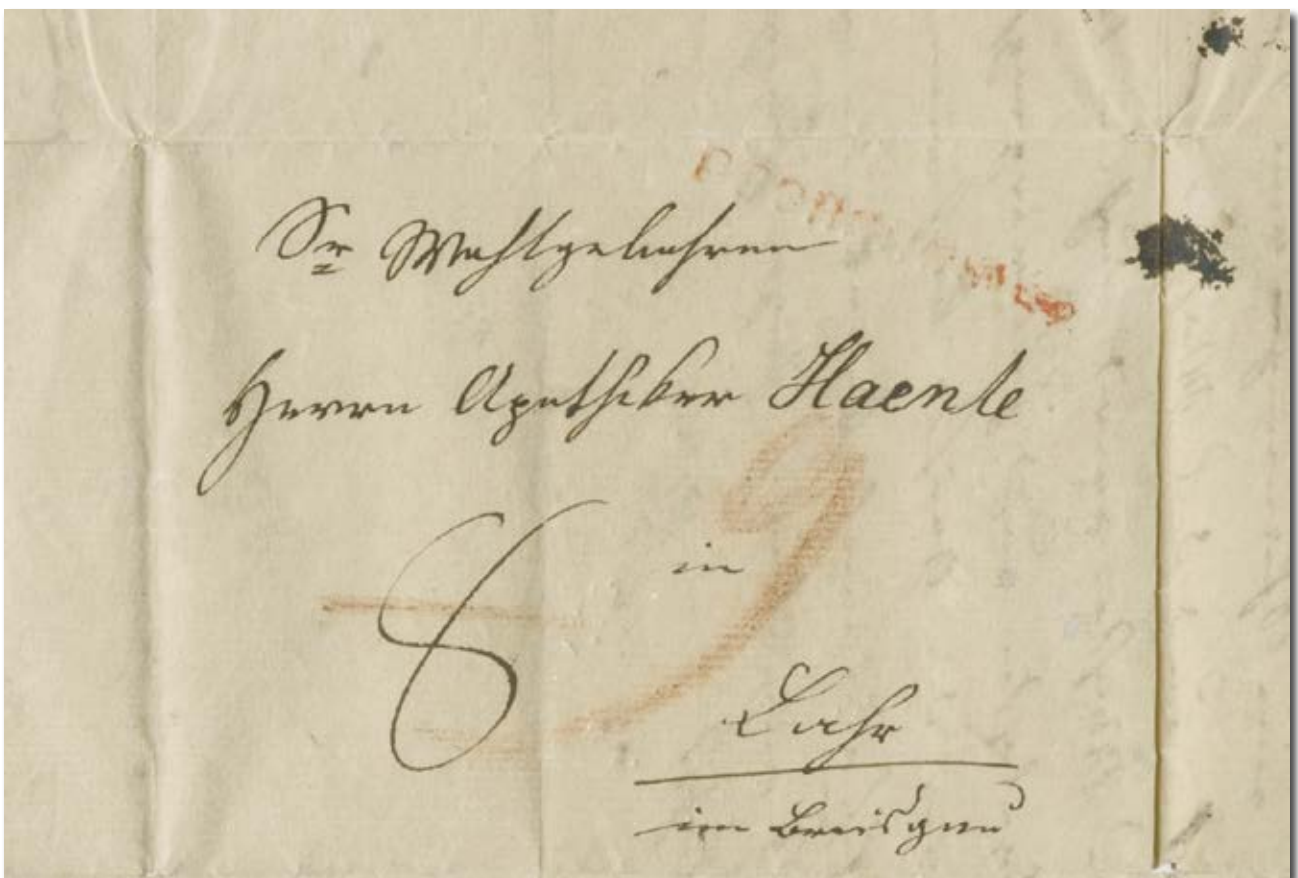 Sr Wohlgebohren
Herrn Apotheker Haenle
9
in
8
Lahr
im Breisgau